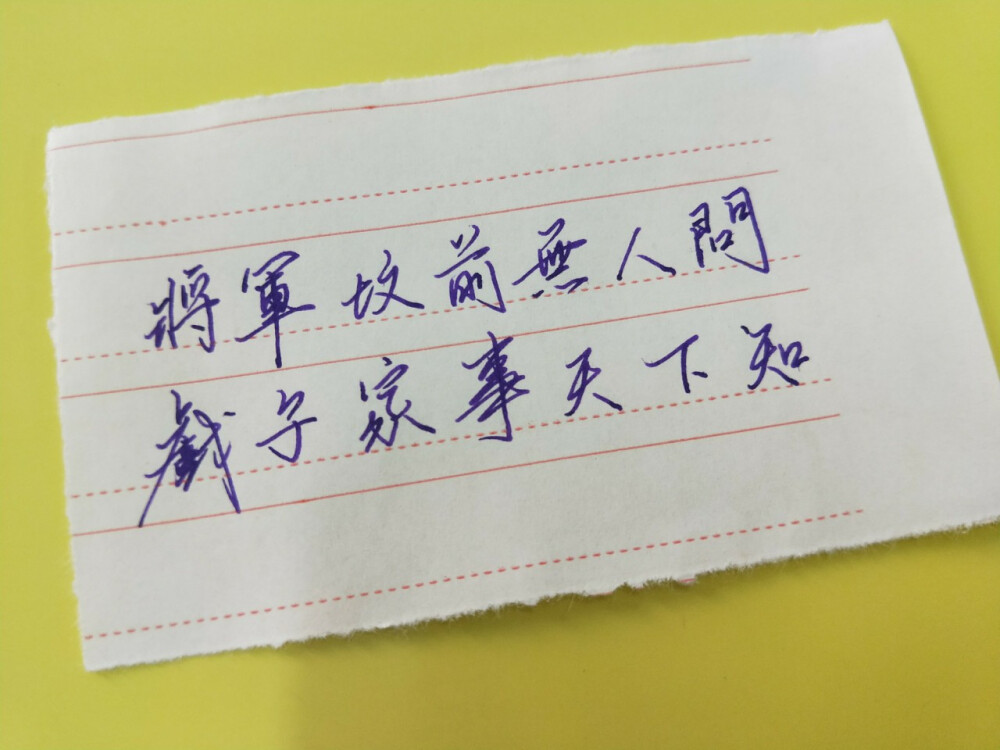 將軍坟前無人問
戲子家事天下知